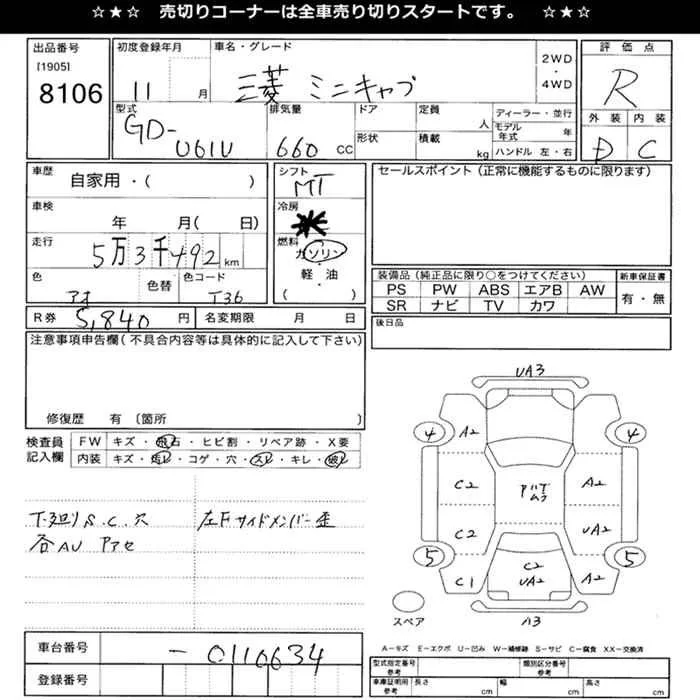 ☆★☆ 売切りコーナーは全車売り切りスタートです。 ☆★☆
出品番号
[1905]
8106
初度登録年月
11 月
車名・グレード
三菱 ミニキャブ
2WD
・
4WD
評価点
R
外装 内装
D C
型式
GD-
U61V
排気量
660 CC
ドア
形状
定員
人
積載
kg
ディーラー・並行
モデル年式 年
ハンドル 左・右
車歴
自家用・( )
車検
年 月( 日)
走行
5万3千492km
色
アオ
色替
色コード
T36
シフト
MT
冷房
燃料
ガソリン
・
軽油
( )
セールスポイント(正常に機能するものに限ります)
装備品(純正品に限り○をつけてください)
PS PW ABS エアB AW
SR ナビ TV カワ
新車保証書
有・無
後日品
R券 5,840 円
名変期限 月 日
注意事項申告欄(不具合内容等は具体的に記入して下さい)
修復歴 有 〔箇所 〕
検査員
記入欄
FW キズ・飛石・ヒビ割・リペア跡・X要
内装 キズ・汚レ・コゲ・穴・スレ・キレ・破レ
下廻りS.C.穴
各AU アセ
左Fサイドメンバー歪
UA3
4
A2
4
C2
A2
C2
UA2
5
C1
C2
UA2
A2
5
A3
スペア
A-キズ E-エクボ U-凹み W-補修跡 S-サビ C-腐食 XX-交換済
車台番号
- 0116634
登録番号
型式指定番号
参考
類別区分番号
参考
車庫証明用
参考
長さ cm
幅 cm
高さ cm